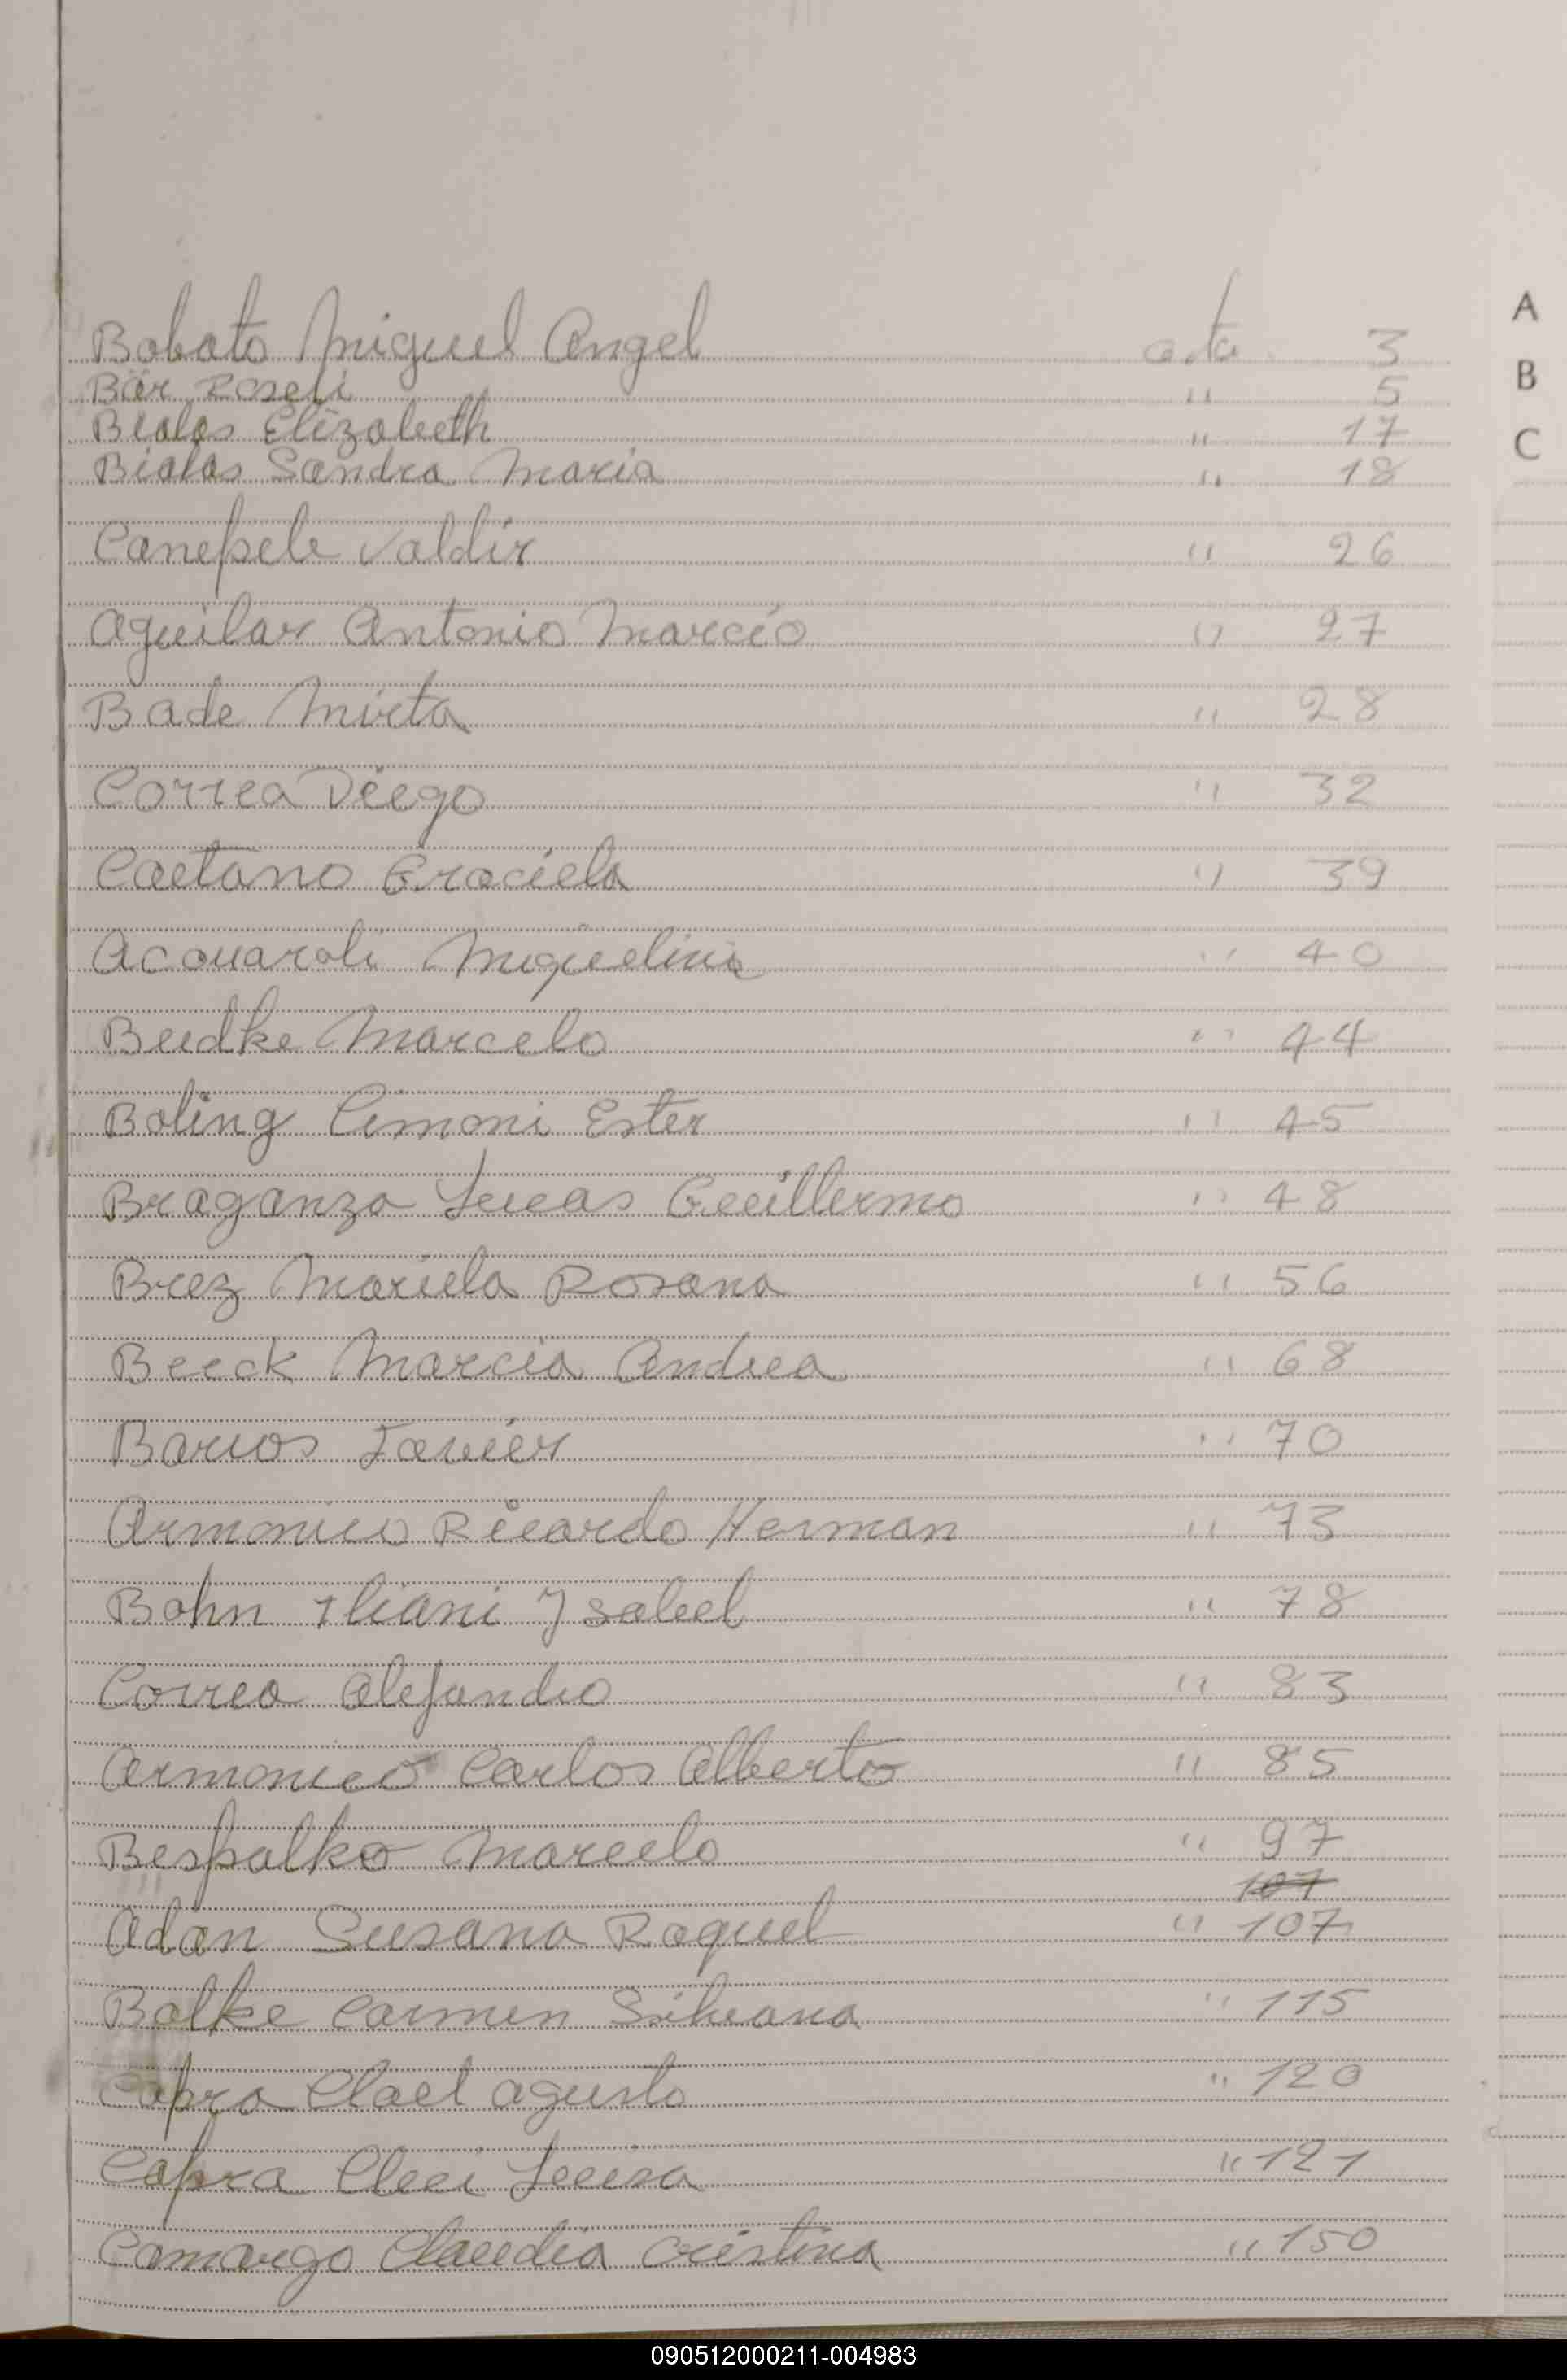 Bobato Miguel Angel acta 3
Bär Roseli " 5
Bialas Elizabeth " 17
Bialas Sandra Maria " 18
Canepele Valdir " 26
Aguilar Antonio Marcio " 27
Bade Mirta " 28
Correa Diego " 32
Caetano Graciela " 39
Acquaroli Miguelina " 40
Budke Marcelo " 44
Boling Cimoni Ester " 45
Braganza Lucas Guillermo " 48
Brez Mariela Rosana " 56
Beeck Marcia Andrea " 68
Barrios Favier " 70
Armonico Ricardo Herman " 73
Bohn Iliani Ysabel " 78
Correa Alejandro " 83
Armonico Carlos Alberto " 85
Bespalko Marcelo " 97
107
Adan Susana Raquel " 107
Balke Carmen Silveana " 115
Capra Clael Agusto " 120
Capra Cleci Luisa " 121
Camargo Claudia Cristina " 150
A
B
C
090512000211-004983